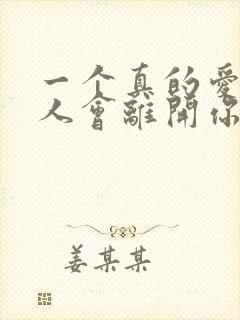 一个真的愛
人會離開你
姜某某